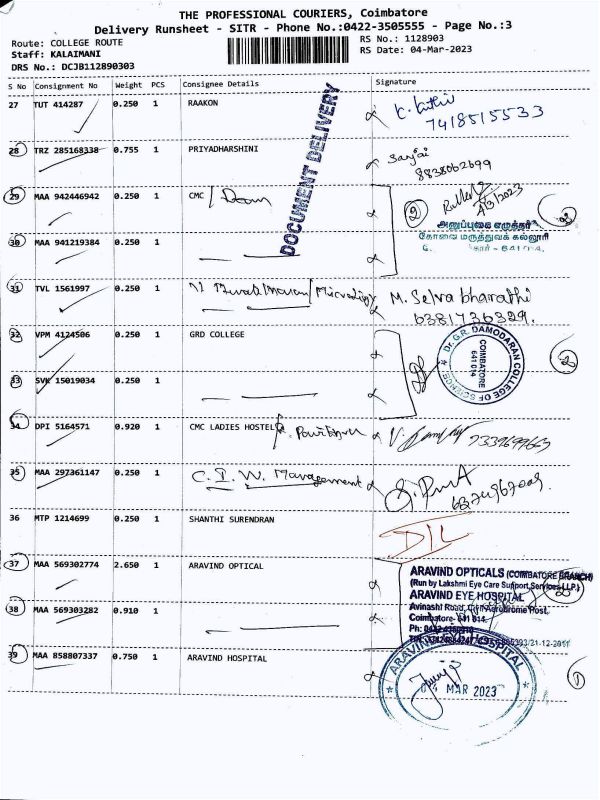 THE PROFESSIONAL COURIERS, Coimbatore
Delivery Runsheet - SITR - Phone No.:0422-3505555 - Page No.:3
Route: COLLEGE ROUTE RS No.: 1128903
Staff: KALAIMANI RS Date: 04-Mar-2023
DRS No.: DCJB112890303
S No Consignment No Weight PCS Consignee Details Signature
27 TUT 414287 0.250 1 RAAKON
7418515533
28 TRZ 285168338 0.755 1 PRIYADHARSHINI Sanjai
8838062699
DOCUMENT DELIVERY
29 MAA 942446942 0.250 1 CMC / Dean 2
4/3/2023
அனுப்புகை எழுத்தர்
கோவை மருத்துவக் கல்லூரி
30 MAA 941219384 0.250 1
31 TVL 1561997 0.250 1 M. Selva bharathi
6381736329.
32 VPM 4124506 0.250 1 GRD COLLEGE
Dr. G.R. DAMODARAN COLLEGE OF SCIENCE
COIMBATORE
641 014
2
33 SVK 15019034 0.250 1
34 DPI 5164571 0.920 1 CMC LADIES HOSTEL
35 MAA 297361147 0.250 1 C.I.W. Management
36 MTP 1214699 0.250 1 SHANTHI SURENDRAN D/L
37 MAA 569302774 2.650 1 ARAVIND OPTICAL
ARAVIND OPTICALS (COIMBATORE BRANCH)
(Run by Lakshmi Eye Care Support Services LLP.)
ARAVIND EYE HOSPITAL
Avinashi Road, Civil Aerodrome Post,
Coimbatore- 641 014.
38 MAA 569303282 0.910 1
39 MAA 858807337 0.750 1 ARAVIND HOSPITAL
ARAVIND EYE HOSPITAL
04 MAR 2023
1